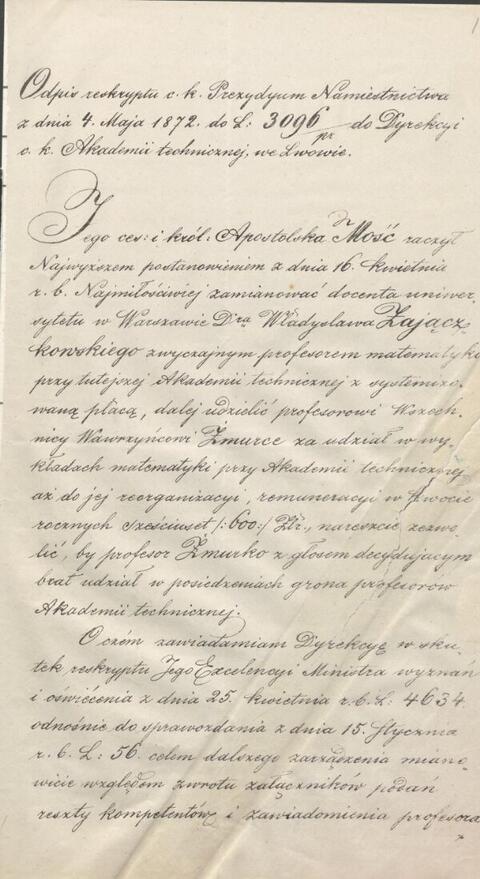 1
Odpis reskryptu c. k. Prezydyum Namiestnictwa
z dnia 4. Maja 1872. do L: 3096/pr do Dyrekcyi
c. k. Akademii technicznej, we Lwowie.
Jego ces: i król: Apostolska Mość raczył
Najwyższem postanowieniem z dnia 16. Kwietnia
r. b. Najmiłościwiej zamianować docenta uniwer
sytetu w Warszawie Dra Władysława Zającz
kowskiego zwyczajnym profesorem matematyki
przy tutejszej Akademii technicznej z systemizo
waną płacą, dalej udzielić profesorowi Wszech
nicy Wawrzyńcowi Żmurce za udział w wy
kładach matematyki przy Akademii technicznej
aż do jej reorganizacyi, remuneracyi w kwocie
rocznych sześciuset /:600:/ Złr., nareszcie zezwo
lić, by profesor Żmurko z głosem decydującym
brał udział w posiedzeniach grona profesorów
Akademii technicznej.
O czém zawiadamiam Dyrekcyę w sku
tek reskryptu Jego Excelencyi Ministra wyznań
i oświécenia z dnia 25. kwietnia r. b. L: 4634
odnośnie do sprawozdania z dnia 15. Stycznia
r. b. L: 56. celem dalszego zarządzenia miano
wicie względem zwrotu załączników podań
reszty kompetentów i zawiadomienia profesora